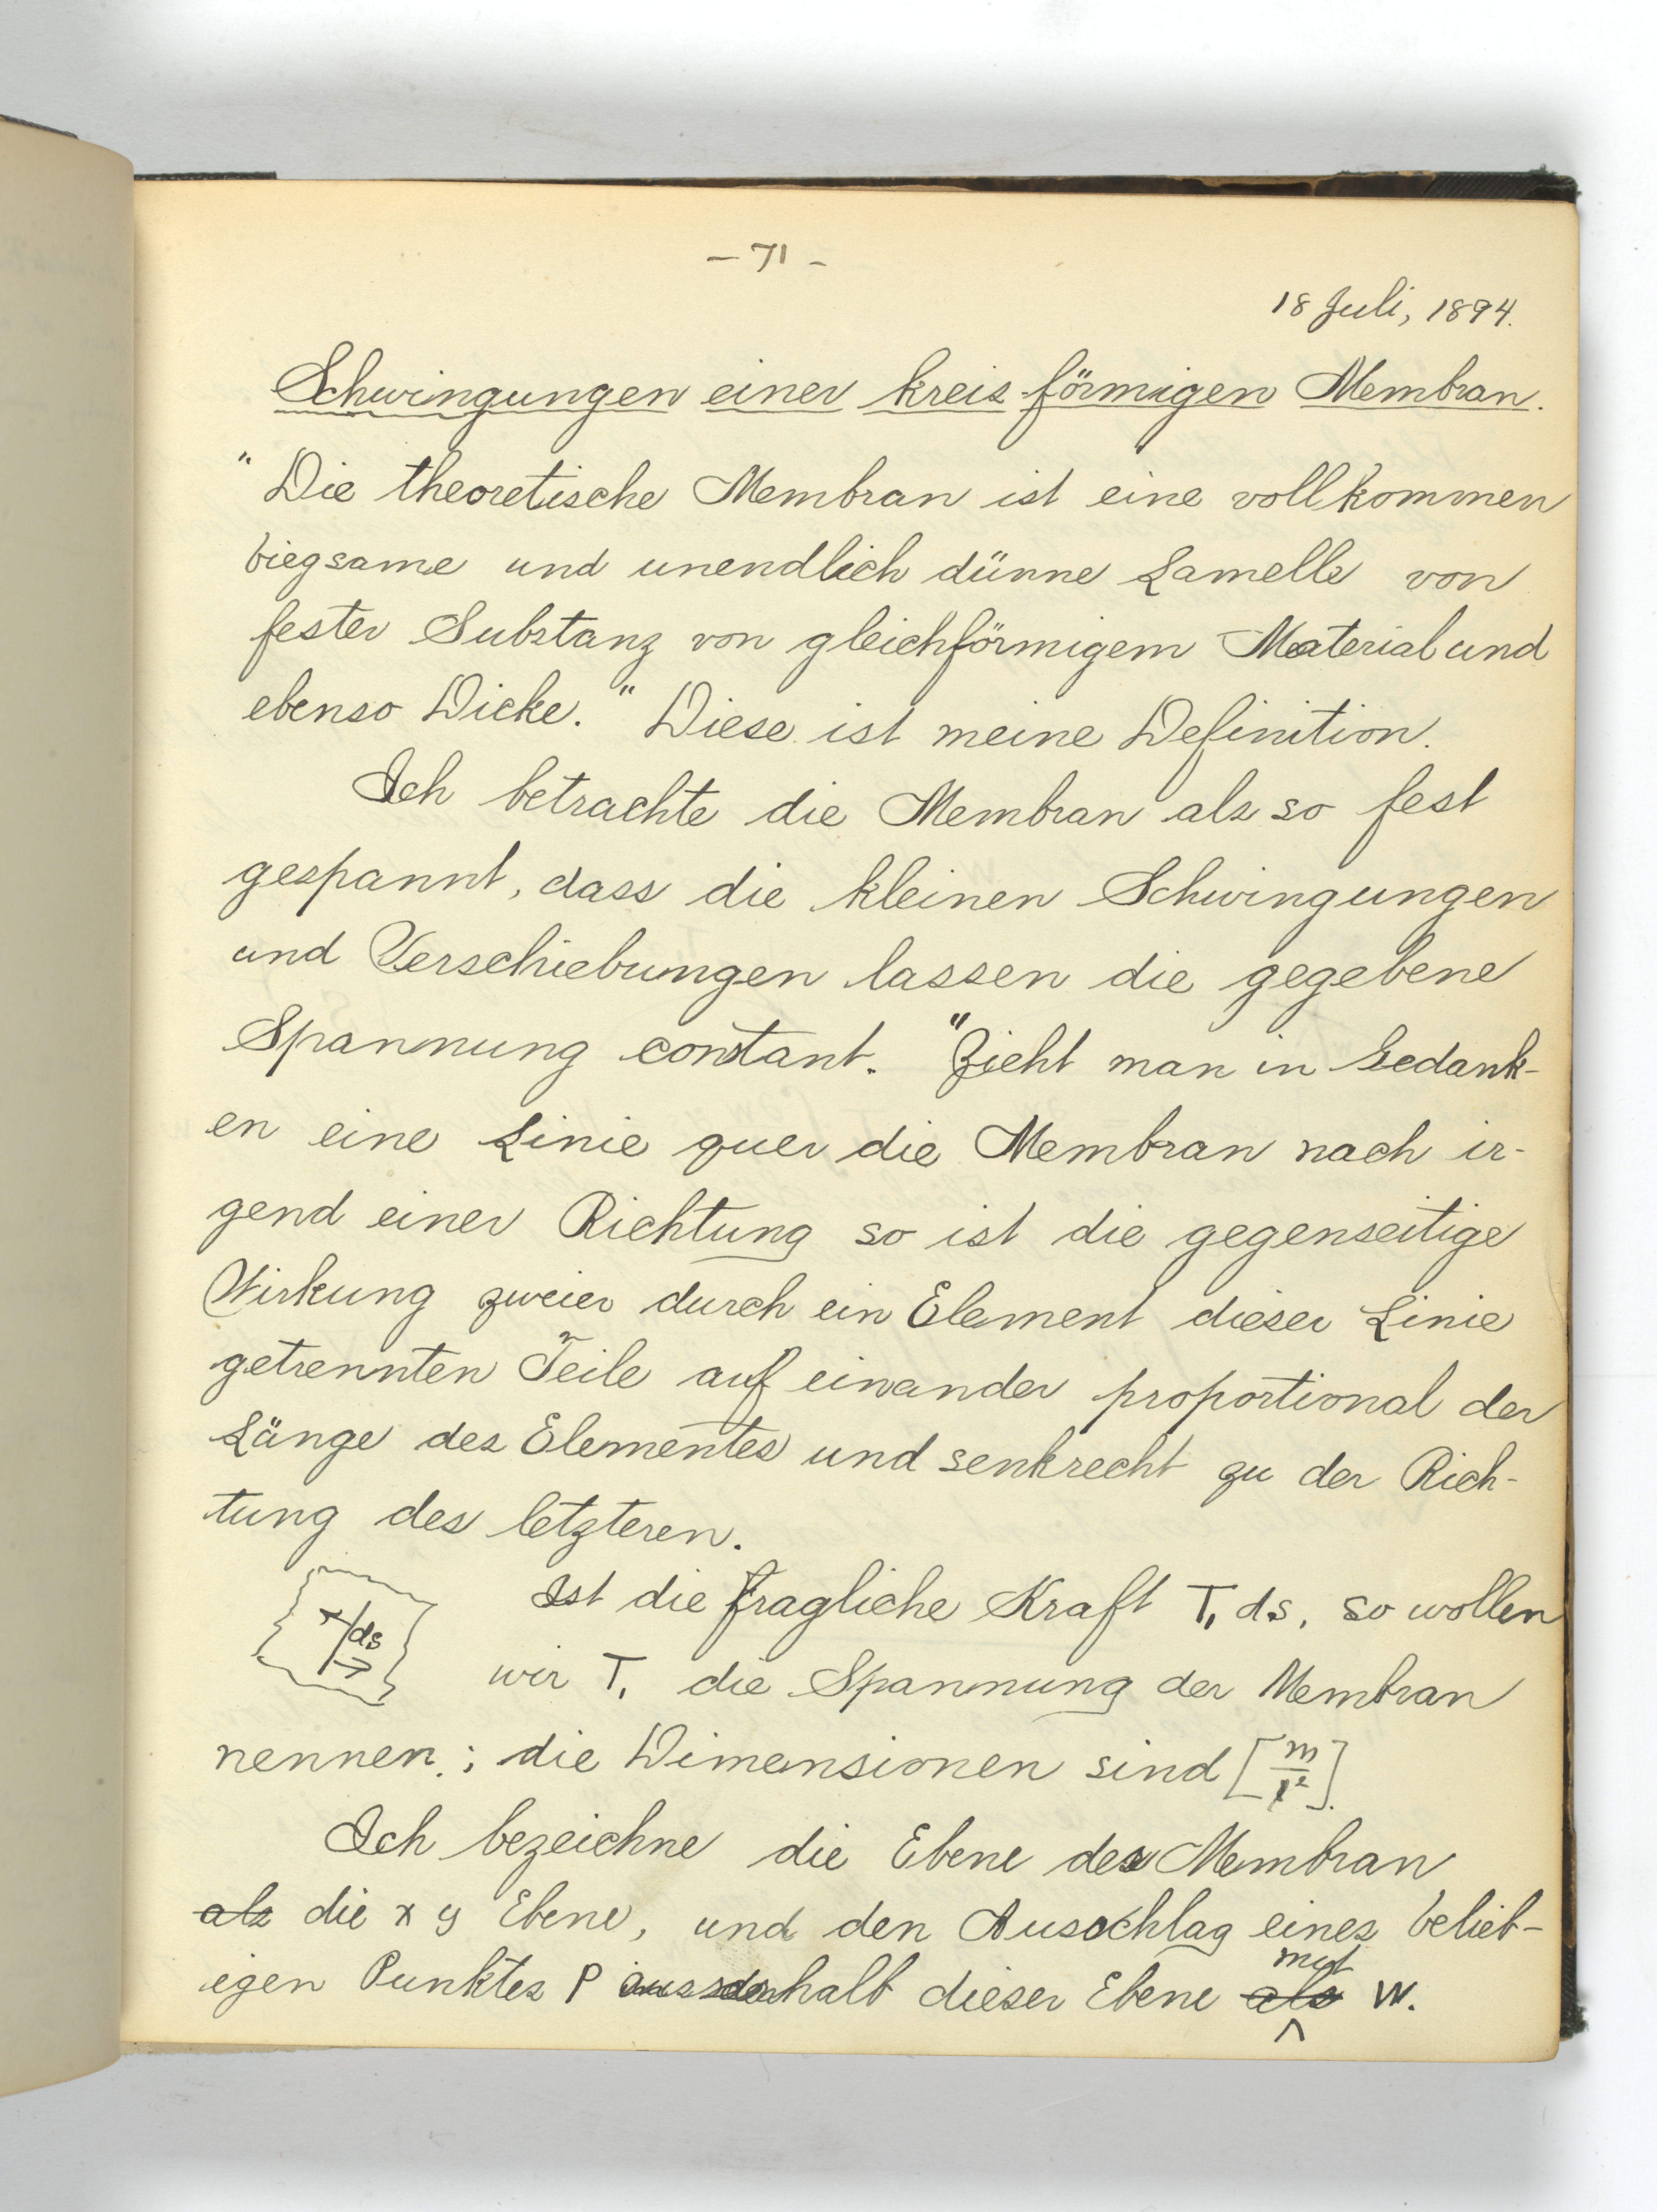 - 71 -
18 Juli, 1894.
Schwingungen einer kreisförmigen Membran.
"Die theoretische Membran ist eine vollkommen
biegsame und unendlich dünne Lamelle von
fester Substanz von gleichförmigem Material und
ebenso Dicke." Diese ist meine Definition.
Ich betrachte die Membran als so fest
gespannt, dass die kleinen Schwingungen
und Verschiebungen lassen die gegebene
Spannung constant. "Zieht man in Gedank-
en eine Linie quer die Membran nach ir-
gend einer Richtung so ist die gegenseitige
Wirkung zweier durch ein Element dieser Linie
getrennten Teile auf einander proportional der
Länge des Elementes und senkrecht zu der Rich-
tung des letzteren.
Ist die fragliche Kraft T₁ ds, so wollen
ds
wir T₁ die Spannung der Membran
nennen; die Dimensionen sind [m/t²].
Ich bezeichne die Ebene der Membran
als die x y Ebene, und den Ausschlag eines belieb-
igen Punktes P ausserhalb dieser Ebene als mit W.